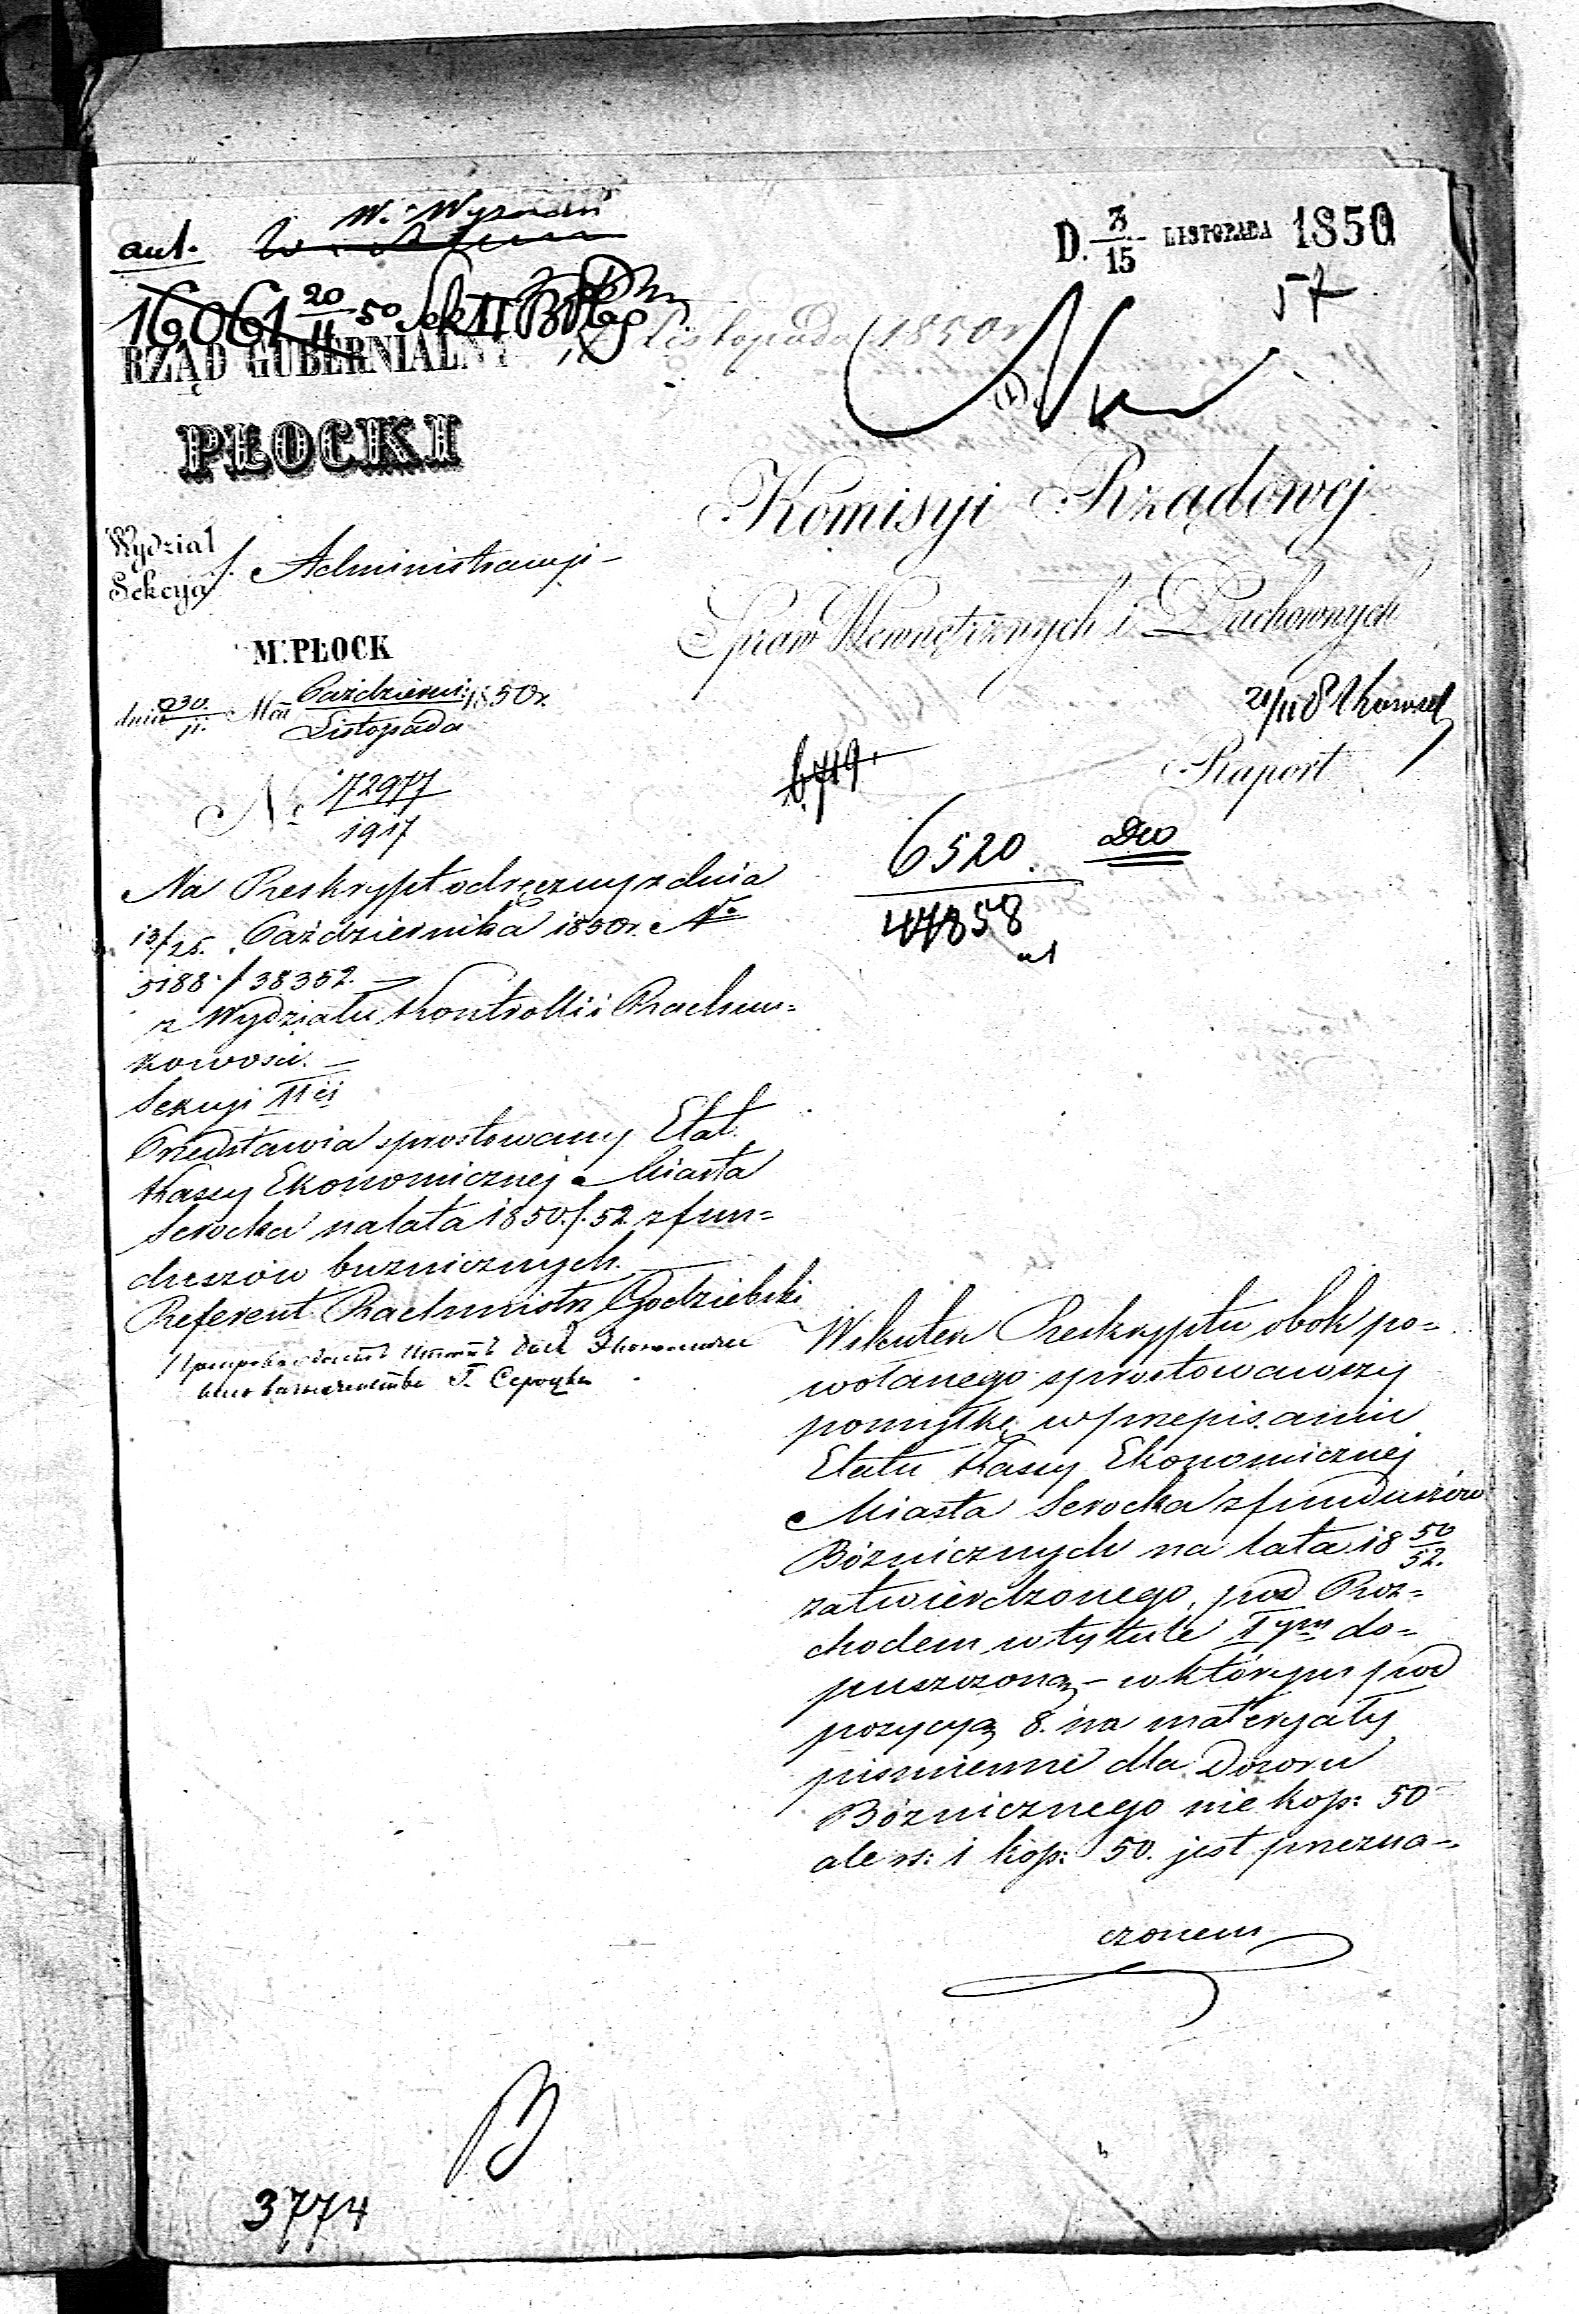 W. Wyznań
aut.
D. 3/15 LISTOPADA 1850
57
16061 20/11 50 Sek II
Listopada 1850 r
RZĄD GUBERNIALNY
PŁOCKI
Komisyi Rządowej
Wydział
Sekcya
Administracyi
Spraw Wewnętrznych i Duchownych
M. PŁOCK
dnia 30/11 Mca Październi:/Listopada 1850 r.
21/11
Raport
6719.
No 72977/1917
6520.
44858
Na Reskrypt odręczny z dnia
13/25. Października 1850 r. No
5188./38352.
z Wydziału Kontrolli i Rachun=
kowości.
Sekcyi IIej
Przedstawia sprostowany Etat
Kassy Ekonomicznej Miasta
Serocka na lata 1850/52 z fun=
duszów bużnicznych.
Referent Rachmistrz Godziebski
Wskutek Reskryptu obok po=
wołanego sprostowawszy
pomyłkę w przepisaniu
Etatu Kassy Ekonomicznej
Miasta Serocka z funduszów
Bóżnicznych na lata 18 50/52.
zatwierdzonego, pod Roz=
chodem w tytule IIym do=
puszczoną - w którym pod
pozycyą 8. na materyały
piśmienne dla Dozoru
Bóżnicznego nie kop: 50
ale rs: 1 kop: 50. jest przezna=
czonem
3774